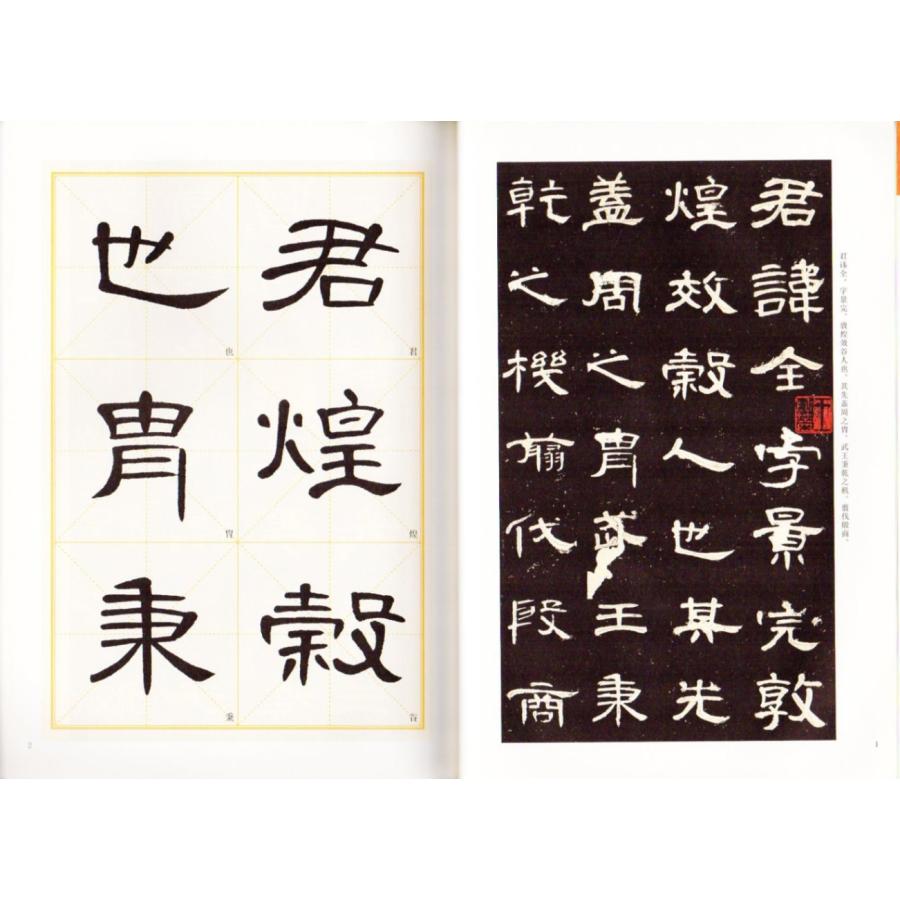 君諱全字景完敦
煌效穀人也其先
蓋周之胄武王秉
乾之機翦伐殷商
君讳全，字景完，敦煌效谷人也，其先盖周之胄，武王秉乾之机，翦伐殷商，
1
君煌穀
君
煌
谷
也胄秉
也
胄
秉
2